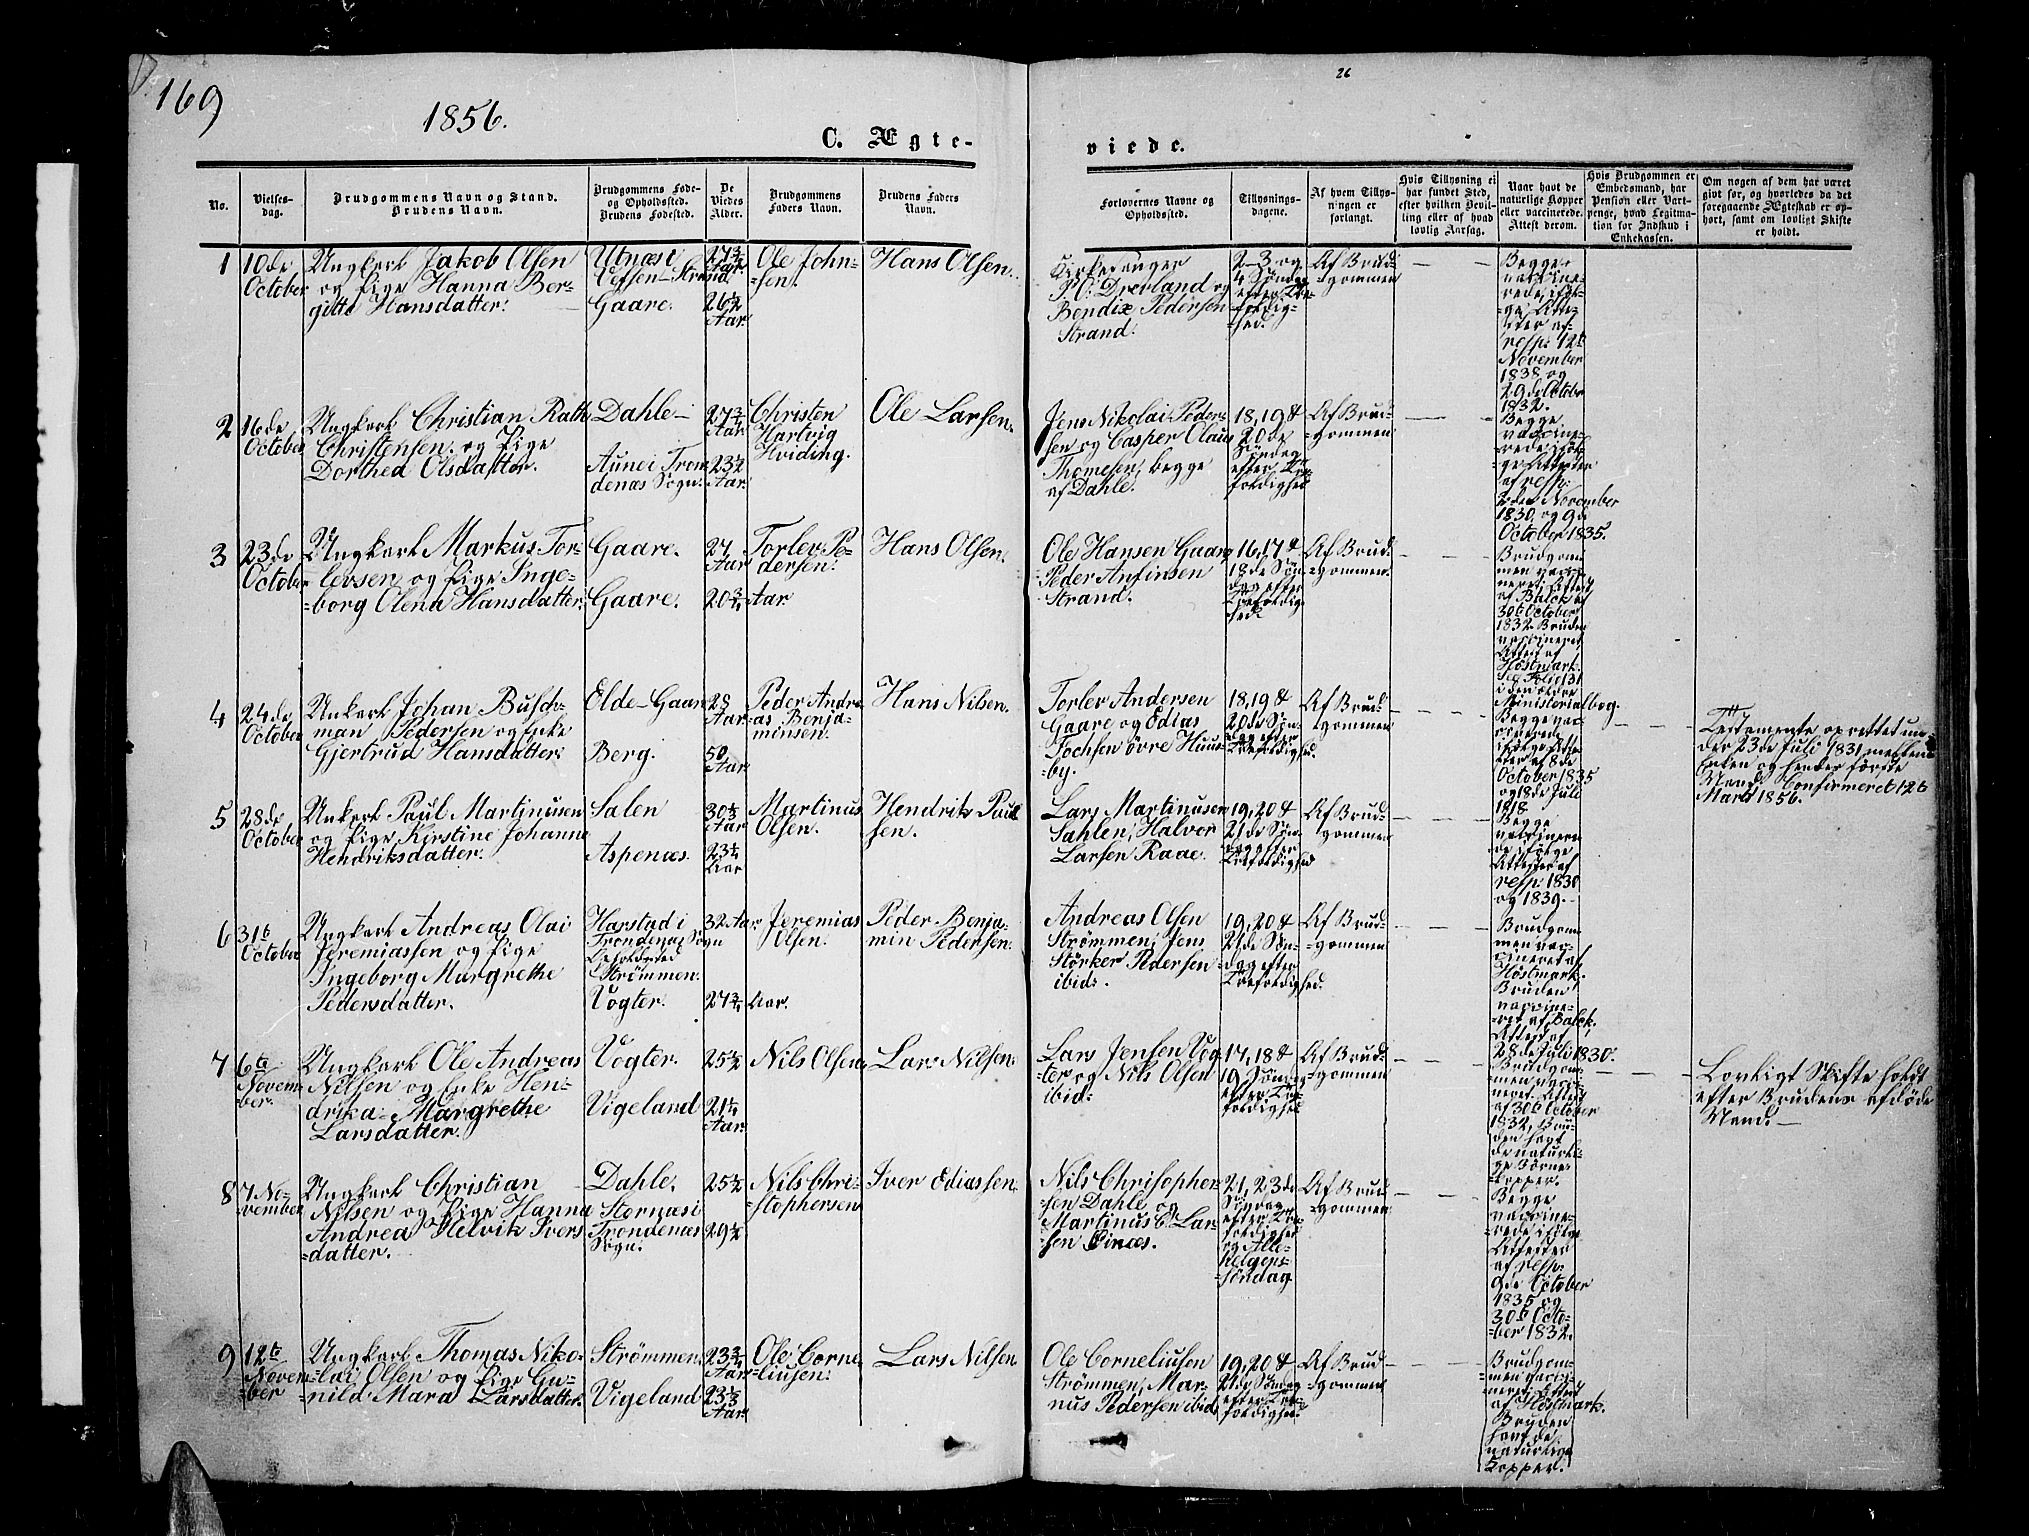 169
1856.
26
C. Ægte-
viede.
No.
Vielses-
dag.
Brudgommens Navn og Stand.
Brudens Navn.
Brudgommens Føde-
og Opholdssted.
Brudens Fødested.
De
Viedes
Alder.
Brudgommens
Faders Navn.
Brudens Faders
Navn.
Forlovernes Navne og
Opholdssted.
Tillysnings-
dagene.
Af hvem Tillys-
ningen er
forlangt.
Hvis Tillysning ei
har fundet Sted,
efter hvilken Bevil-
ling eller af hvad
lovlig Aarsag.
Naar havt de
naturlige Kopper
eller vaccinerede.
Attest derom.
Hvis Brudgommen er
Embedsmand, har
Pension eller Vart-
penge, hvad Legitima-
tion for Indskud i
Enkekassen.
Om nogen af dem har været
gift før, og hvorledes da det
foregaaende Ægteskab er op-
hørt, samt om lovligt Skifte
er holdt.
1
10de
October
Ungkarl Jakob Olsen
og Pige Hanna Ber-
gitte Hansdatter.
Utnæs i
Vefsen - Strand
Gaare.
27 3/4
Aar
26 1/2
Aar.
Ole John-
=sen.
Hans Olsen.
Kirkesanger
P. C. Dverland og
Bendix Pedersen
Strand.
Af Brud-
=gommen
Begge
vaccine-
rede
resp: 12te
November
1838 og
29de October
1832.
2
16de
October
Ungkarl Christian Rath
Christensen og Pige
Dorthea Olsdatter.
Dahle -
Aune i Tron-
denæs Sogn.
27 3/4
Aar
23 1/2
Aar.
Christen
Hartvig
Hviding.
Ole Larsen.
Jens Nikolai Peder-
sen og Casper Olaus
Thomesen, begge
af Dahle.
18, 19 &
20de
Søndag
efter Tre-
foldighed
Af Brud-
=gommen
Begge
vaccine-
=rede iføl-
ge Attester
af resp:
November
1830 og 9de
October 1835.
3
23de
October
Ungkarl Markus Tor-
levsen og Pige Inge-
=borg Olena Hansdatter.
Gaare.
Gaare.
27
Aar
20 3/4
Aar.
Torlev Pe-
dersen.
Hans Olsen.
Ole Hansen Gaare
Peder Anfinsen
Strand.
16, 17 &
18de Søn-
dag efter
Trefoldig-
hed
Af Brud-
=gommen.
Brudgom-
men vacci-
neret, Attest
af Balck af
30te October
1832. Bruden
vaccineret
Attest af
Høstmark.
See Folio 131
i den ældre
Ministerialbog.
4
24de
October
Unkarl Johan Busch-
man Pedersen og Enke
Gjertrud Hansdatter.
Elde - Gaare
Berg.
28
Aar
50
Aar.
Peder Andre-
=as Benja-
minsen.
Hans Nilsen.
Torlev Andersen
Gaare og Edias
Jochsen øvre Huus-
=by.
18, 19 &
20de Søn-
dag efter
Trefoldighed.
Af Brud-
=gommen
Begge vac-
cinerede
ifølge Atte-
ster af 8de
October 1835
og 18de Juli
1818
Testamente oprettet un-
der 23de Juli 1831 mellem
Enken og hendes første
Mand. Confirmeret 12te
Marts 1856.
5
28de
October
Unkarl Paul Martinusen
og Pige Kirstine Johanna
Hendriksdatter.
Salen
Aspenæs.
Aar
23 1/4
Aar
Martinus
Olsen.
Hendrik Paul-
sen.
Lars Martinusen
Sahlen, Halvor
Larsen Raae.
19, 20 &
21de Søn-
dag efter
Trefoldighed
Af Brud-
=gommen
Begge
vaccinere-
de ifølge
Attester af
resp: 1830
og 1839.
6
31te
October
Ungkarl Andreas Olai
Jeremiassen og Pige
Ingeborg Margrethe
Pedersdatter.
Harstad i
Trondenæs Sogn
Opholdsted
Strømmen.
Vogter.
32 Aar
27 3/4
Aar.
Jeremias
Olsen.
Peder Benja-
min Pedersen.
Andreas Olsen
Strømmen, Jens
Størker Pedersen
ibid.
19, 20 &
21de Søn-
dag efter
Trefoldighed.
Af Brud-
=gommen
Brudgom-
men vac-
cineret af
Høstmark.
Bruden
vaccine-
ret af Balck,
Attest af
28de Juli 1830.
7
6te
Novem-
ber.
Ungkarl Ole Andreas
Nilsen og Enke Hen-
drika Margrethe
Larsdatter.
Vogter.
Vigeland
25 1/2
21 1/4
Aar.
Nils Olsen
Lars Nilsen
Lars Jensen Vog-
ter og Nils Olsen
ibid.
17, 18 &
19 Søndag
efter Tre-
foldighed
Af Brud-
=gommen
Brudgom-
men vacci-
neret Attest
af 30te October
1832, Bru-
den havt
de naturli-
ge Børne-
kopper.
Lovligt Skifte holdt
efter Brudens afdøde
Mand. -
8
7 No-
vember
Ungkarl Christian
Nilsen og Pige Hanna
Andrea Helvik Ivers-
=datter.
Dahle.
Stornæs i
Trondenæs
Sogn.
25 1/2
29 1/2
Nils Chri-
=stophersen
Iver Ediassen.
Nils Chrisopher-
=sen Dahle og
Martinus E. Lar-
sen
21, 23de
Søndag
efter Tre-
foldighed
og Alle-
helgens-
=søndag
Af Brud-
=gommen
Begge
vaccine-
=rede ifølge
Attester
af resp:
9de October
1835 og
30te Octo-
ber 1832.
9
12te
Novem-
=ber
Ungkarl Thomas Niko-
=lai Olsen og Pige Gu-
=nild Mara Larsdatter.
Strømmen.
Vigeland
23 3/4
Aar
Aar.
Ole Corne-
=liusen.
Lars Nilsen.
Ole Corneliusen
Strømmen, Mar-
nus Pedersen ibid.
19, 20 &
21de Søndag
efter Tre-
foldighed.
Af Brud-
=gommen
Brudgom-
men vacci-
neret, Attest
af Høstmark.
Bruden
havt de
naturlige
Kopper.